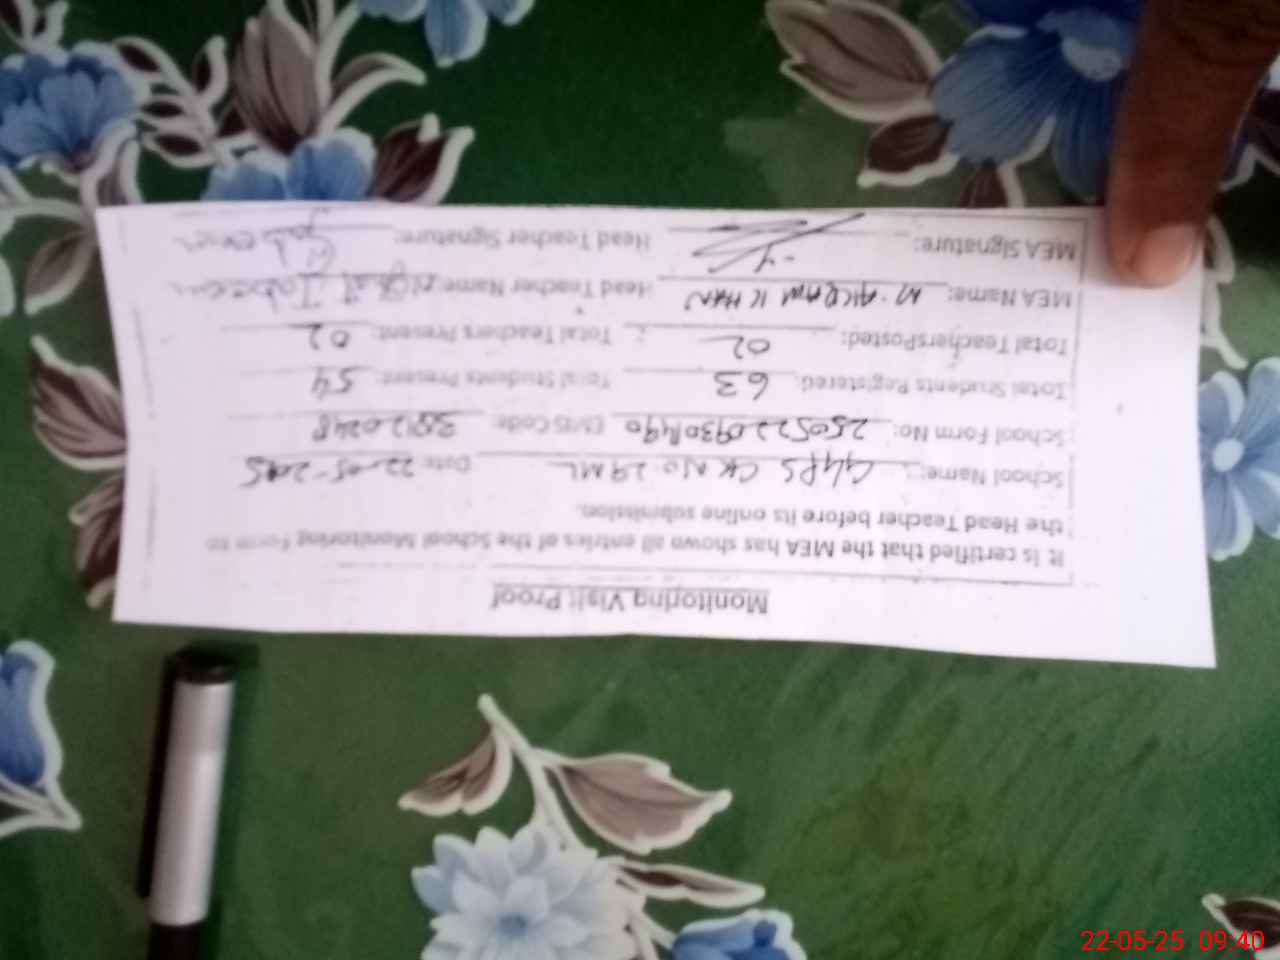 Monitoring Visit Proof
It is certified that the MEA has shown all entries of the School Monitoring Form to
the Head Teacher before its online submission.
School Name: GGPS CK NO. 29 ML Date: 22-05-2025
School Form No: EMIS Code:
Total Students Registered: 63 Total Students Present: 54
Total TeachersPosted: 02 Total Teachers Present: 02
MEA Name: M. AKRAM KHAN Head Teacher Name:
MEA Signature: Head Teacher Signature:
22-05-25 09:40